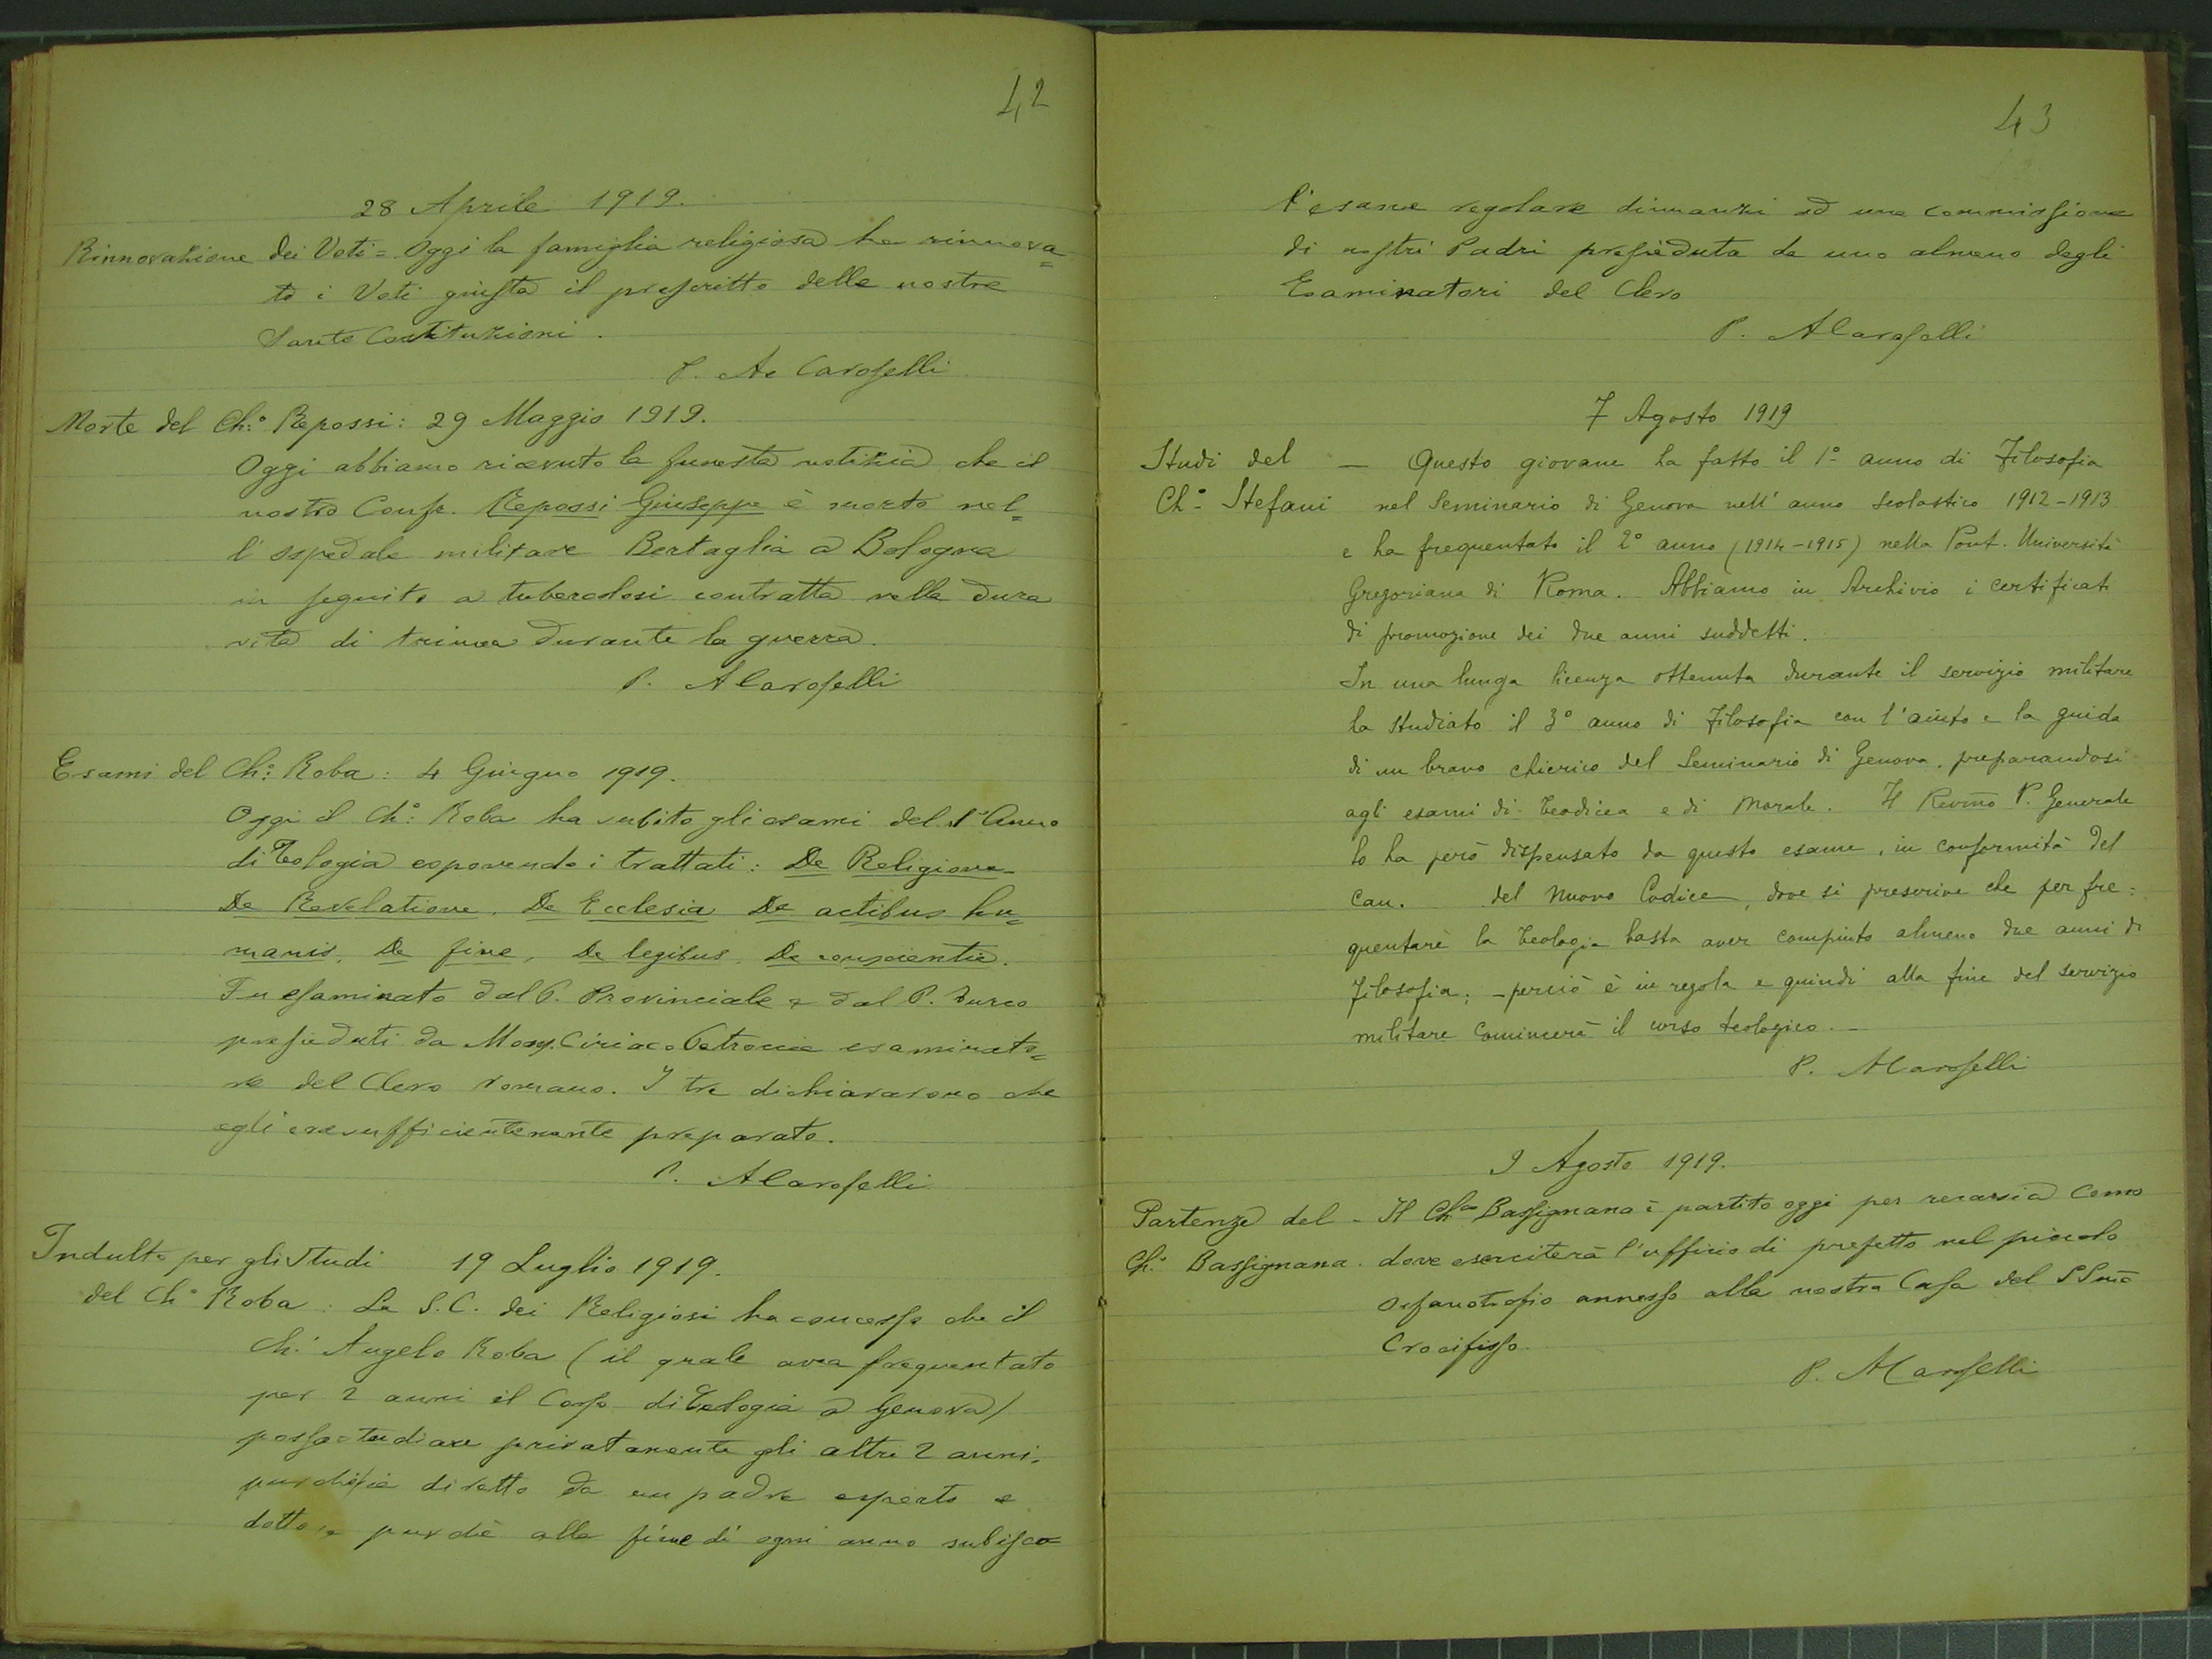 42
28 Aprile 1919.
Rinnovazione dei Voti = Oggi la famiglia religiosa ha rinnova=
to i Voti giusta il prescritto delle nostre
Sante Costituzioni.
P. A. Caroselli
Morte del Ch.º Repossi: 29 Maggio 1919.
Oggi abbiamo ricevuto la funesta notizia che il
nostro Confr. Repossi Giuseppe è morto nel=
l'ospedale militare Bertaglia a Bologna
in seguito a tubercolosi contratta nella dura
vita di trincea durante la guerra.
P. A Caroselli
Esami del Ch.º Roba: 4 Giugno 1919.
Oggi il Ch.º Roba ha subito gli esami del 1º Anno
di Teologia esponendo i trattati: De Religione
De Revelatione, De Ecclesia De actibus hu=
manis, De fine, De legibus, De conscientia.
Fu esaminato dal P. Provinciale e dal P. Turco
presieduti da Mons. Ciriaco Petroccia esaminato=
re del Clero romano. I tre dichiararono che
egli era sufficientemente preparato.
P. A Caroselli
Indulto per gli Studi 19 Luglio 1919.
del Ch.º Roba: La S.C. dei Religiosi ha concesso che il
Ch.º Angelo Roba (il quale avea frequentato
per 2 anni il Corso di Teologia a Genova)
possa studiare privatamente gli altri 2 anni,
purchè sia diretto da un padre esperto e
dotto e purchè alla fine di ogni anno subisca
43
l'esame regolare dinnanzi ad una commissione
di nostri Padri presieduta da uno almeno degli
Esaminatori del Clero
P. A Caroselli
7 Agosto 1919
Studi del — Questo giovane ha fatto il 1º anno di Filosofia
Chº Stefani nel Seminario di Genova nell'anno scolastico 1912-1913
e ha frequentato il 2º anno (1914-1915) nella Pont. Università
Gregoriana di Roma. Abbiamo in Archivio i certificati
di promozione dei due anni suddetti.
In una lunga licenza ottenuta durante il servizio militare
ha studiato il 3º anno di Filosofia con l'aiuto e la guida
di un bravo chierico del Seminario di Genova, preparandosi
agli esami di Teodicea e di Morale. Il Revmo P. Generale
lo ha però dispensato da questo esame, in conformità del
can. del Nuovo Codice, dove si prescrive che per fre=
quentare la Teologia basta aver compiuto almeno due anni di
filosofia; - perciò è in regola e quindi alla fine del servizio
militare comincerà il corso teologico. -
P. A Caroselli
9 Agosto 1919.
Partenza del - Il Chco Bassignana è partito oggi per recarsi a Como
Ch.º Bassignana. dove eserciterà l'ufficio di prefetto nel piccolo
orfanotrofio annesso alla nostra Casa del SSmo
Crocifisso.
P. A Caroselli